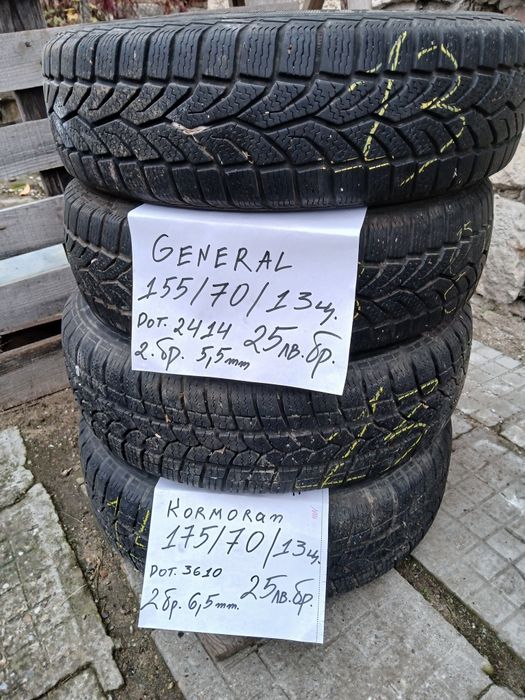 GENERAL
155/70/13ц.
DOT. 2414 25лв.бр.
2.бр. 5,5mm
Kormoran
175/70/13ц.
DOT. 3610
2бр. 6,5mm. 25лв.бр.